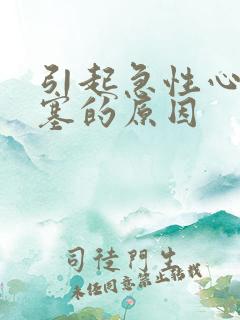 引起急性心
塞的原因
司徒門生
未经同意禁止转载